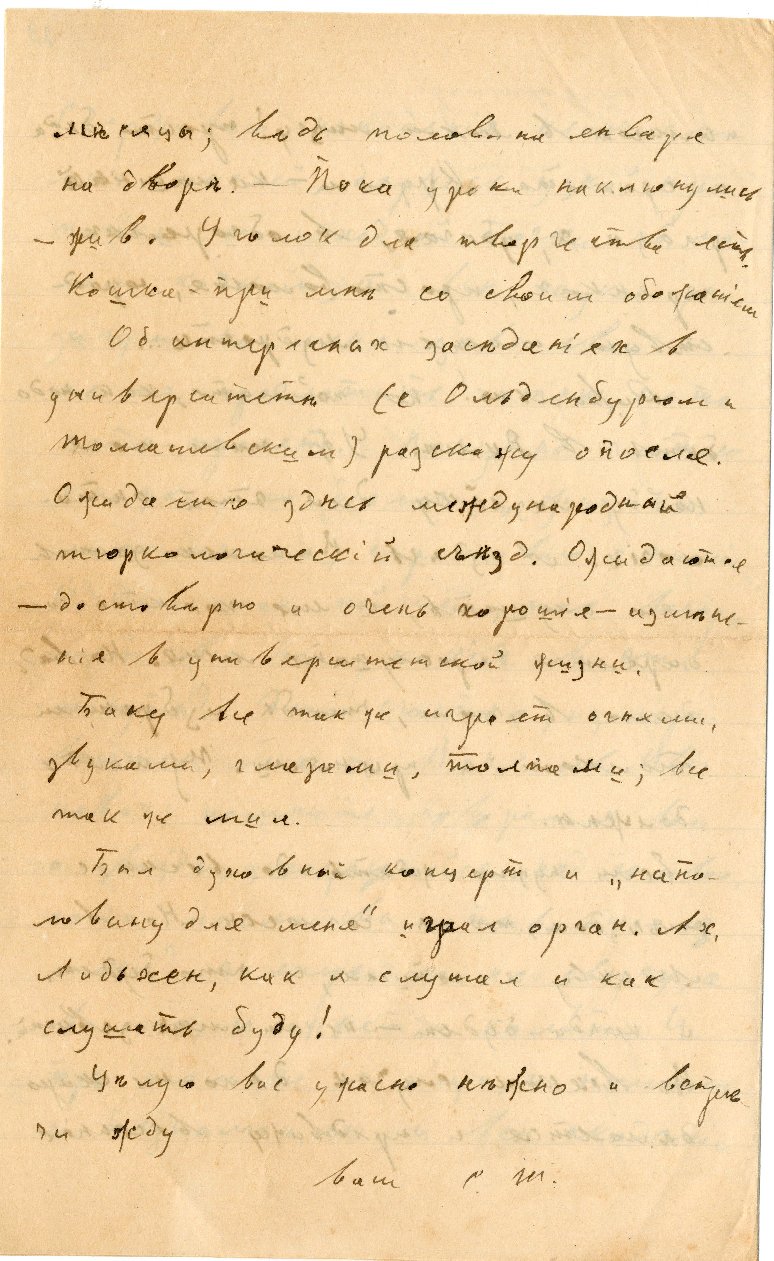 мѣсяцы; вѣдь половина января
на дворѣ. — Пока уроки наклюнулись
— жив. Уголок для творчества есть.
Кошка при мнѣ со своим обожаніем
Об интересных засѣданіях в
университетѣ (с Ольденбургом и
Томашевским) разскажу опосля.
Ожидается здѣсь международный
тюркологическій съѣзд. Ожидаются
— достовѣрно и очень хорошія — измѣне-
нія в университетской жизни.
Баку все так же играет огнями,
звуками, глазами, толпами; все
так же мил.
Был духовный концерт и „напо-
ловину для меня" играл орган. Ах,
как я слушал и как
слушать буду!
Цѣлую вас ужасно нѣжно и встрѣ-
чи жду
ваш